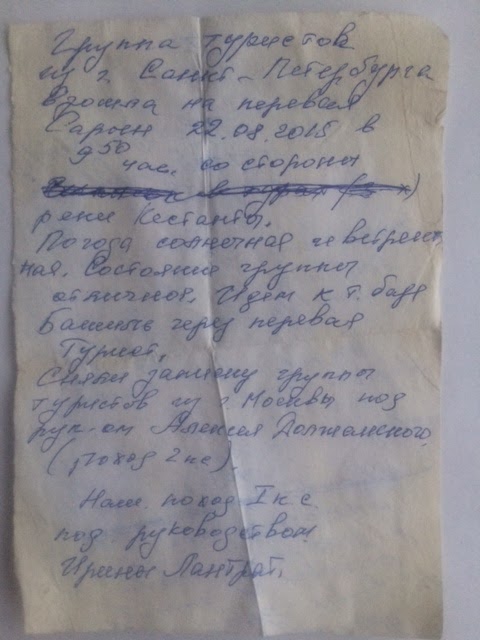 Группа туристов
из г. Санкт-Петербурга
взошла на перевал
Сарын 22.08.2015 в
9 50 час. со стороны
реки Кестанты.
Погода солнечная и ветрен-
ная. Состояние группы
отличное. Идем к т. базе
Башиль через перевал
Турист.
Сняли записку группы
туристов из г. Москвы под
рук-ом Алексея Должанского.
(поход 2 кс).
Наш поход I к.с.
под руководством
Ирины Лантрат.